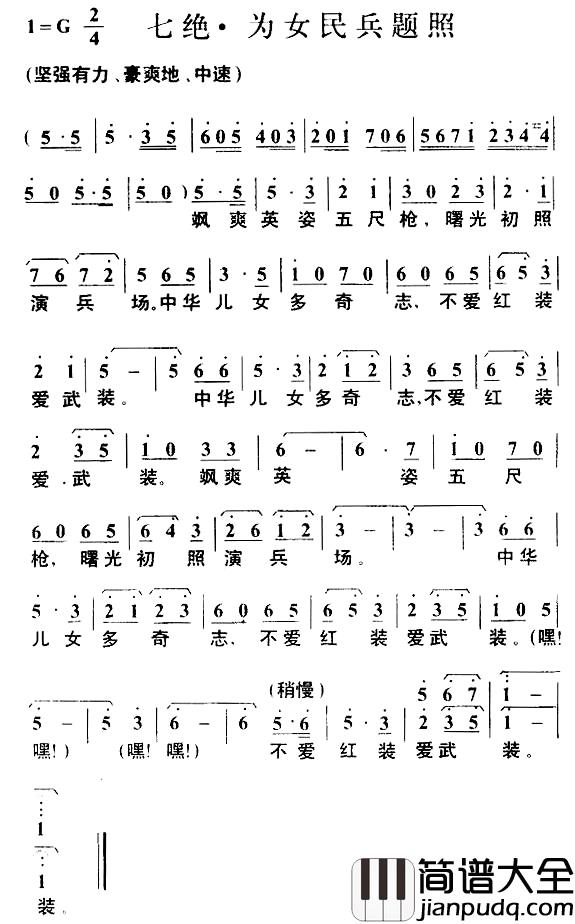 1=G 2/4 七绝·为女民兵题照
(坚强有力、豪爽地、中速)
(5·5 | 5·35 | 605 403 | 201 706 | 5671 2344 |
50 5·5 | 50) 5·5 | 5·3 | 21 | 30 23 | 2·1 |
飒爽英姿五尺枪,曙光初照
76 72 | 5 65 | 3·5 | 10 70 | 60 65 | 65 3 |
演兵场。中华儿女多奇志,不爱红装
2 1 | 5 - | 5 66 | 5·3 | 2 12 | 3 65 | 65 3 |
爱武装。中华儿女多奇志,不爱红装
2 35 | 10 33 | 6 - | 6·7 | 10 70 |
爱武装。飒爽英姿五尺
60 65 | 64 3 | 26 12 | 3 - | 3 - | 3 66 |
枪,曙光初照演兵场。中华
5·3 | 21 23 | 60 65 | 65 3 | 2 35 | 105 |
儿女多奇志,不爱红装爱武装。(嘿!
(稍慢) 5 67 | 1 -
5 - | 5 3 | 6 - | 6 - | 5·6 | 5·3 | 2 35 | 1 - |
嘿!) (嘿!嘿!) 不爱红装爱武装。
1
1
装。
简谱大全
jianpudq.com